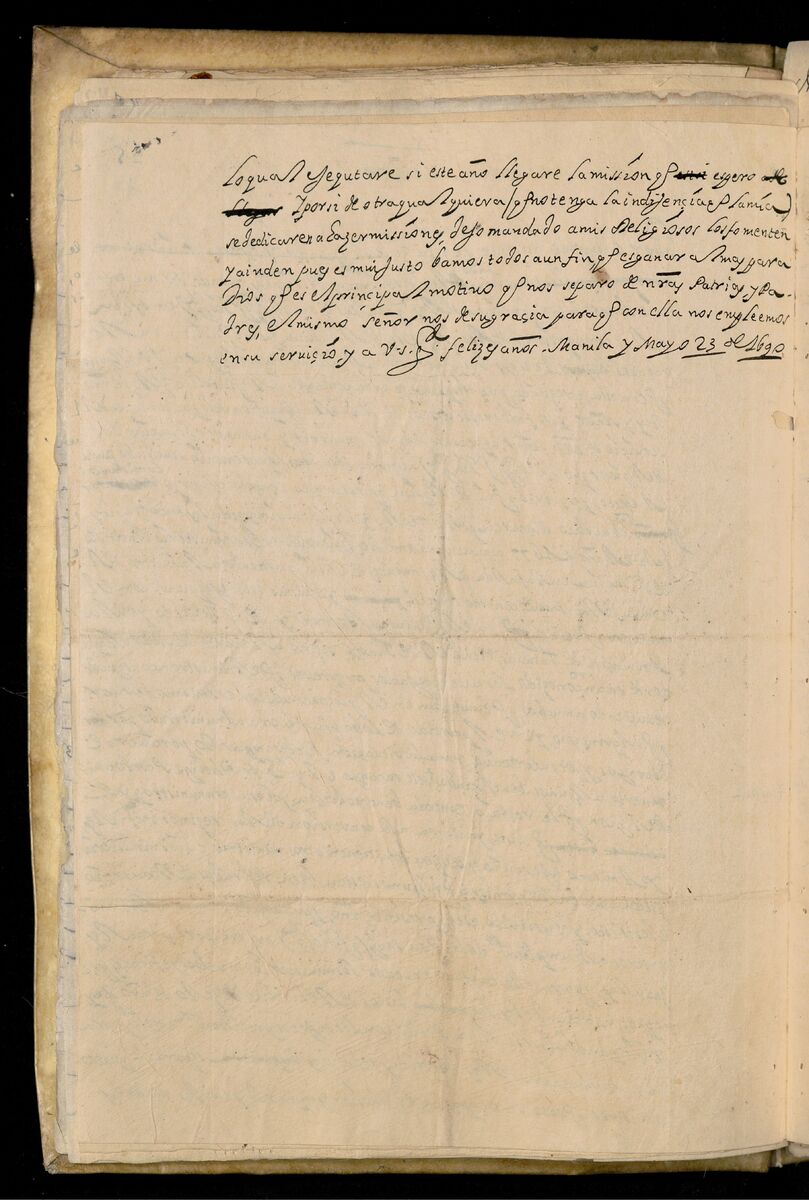 lo qual ejequtare si este año llegare la mission q̃ espero
Y por si de otra qualquiera (q̃ no tenga la indijençia q̃ la mia)
se dedicaren a hazer missiones, dejo mandado a mis Religiosos los fomenten
y ainden pues es mui justo bamos todos a un fin q̃ es ganar almas para
Dios q̃ es el prinçipal motiuo q̃ nos separo de nr̃as Patrias y Pa-
dres, el mismo señor nos de su graçia para q̃ con ella nos empleemos
en su serviçio, y a V.S. gde. felizes años. Manila y Mayo 23 de 1690